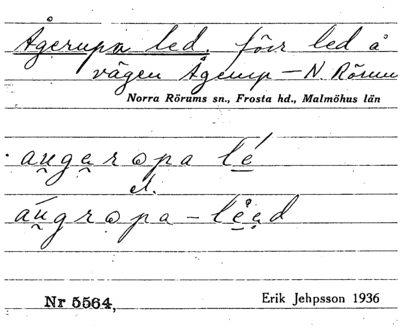 Ågerupa led. förr led å
vägen Ågerup – N. Rörum
Norra Rörums sn., Frosta hd., Malmöhus län
au̯ga̯ropa lé
el.
áu̯gropa – lè̯a̯d
Nr 5564,
Erik Jehpsson 1936